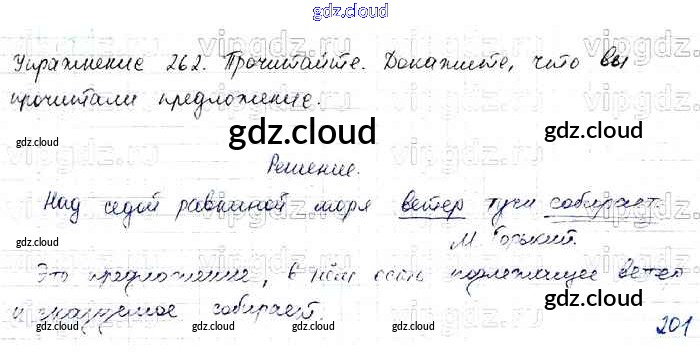 gdz.cloud
Упражнение 262. Прочитайте. Докажите, что вы
прочитали предложение.
gdz.cloud
gdz.cloud
gdz.cloud
Решение.
Над седой равниной моря ветер тучи собирает.
gdz.cloud
М. Горький.
Это предложение, в нём есть подлежащее ветер
gdz.cloud
и сказуемое собирает.
201